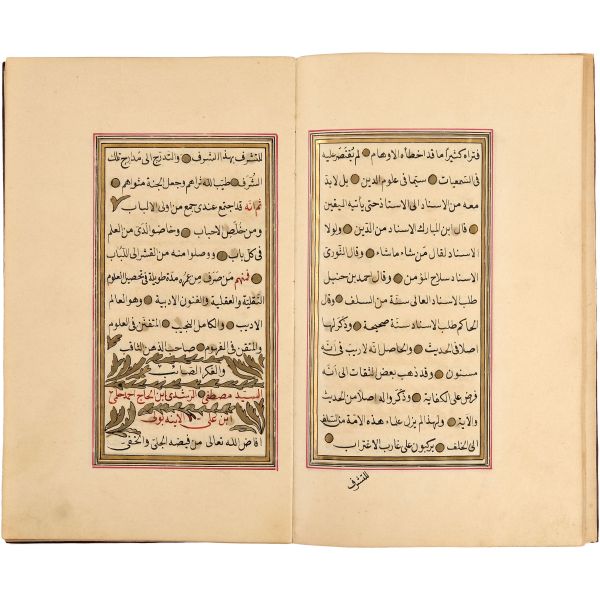 فتراه كثيرا ما قد اخطأه الاوهام لم يقتصر عليه
فى السمعيات سيما فى علوم الدين بل لابد
معه من الاسناد الى الاستاذ حتى يأتيه اليقين
قال ابن المبارك الاسناد من الدين ولولا
الاسناد لقال من شاء ما شاء وقال الثورى
الاسناد سلاح المؤمن وقال احمد بن حنبل
طلب الاسناد العالى سنة من السلف وقال
الحاكم طلب الاسناد سنة صحيحة وذكر لها
اصلا فى الحديث والحاصل انه لا ريب فى أنه
مسنون وقد ذهب بعض الثقات الى أنه
فرض على الكفاية وذكروا له اصلا من الحديث
والآية ولهذا لم يزل علماء هذه الامة من السلف
الى الخلف يركبون على غارب الاغتراب
للتشرف
للتشرف بهذا الشرف والتدرج الى مدارج تلك
الشرف طيب الله ثراهم وجعل الجنة مثواهم
ثم انه قد اجتمع عندى جمع من اولى الالباب
ومن خلص الاحباب وخاضوا لدى من العلم
فى كل باب ووصلوا منه من القشر الى اللباب
فمنهم من صرف من عمره مدة طويلة فى تحصيل العلوم
النقلية والعقلية والفنون الادبية وهو العالم
الاديب والكامل النجيب المتفنن فى العلوم
والمتقن فى الفهوم صاحب الذهن الثاقب
والفكر الصائب
السيد مصطفى الرشدى ابن الحاج احمد حلمى
ابن على الاينه بولى
افاض الله تعالى من فيضه الجلى والخفى